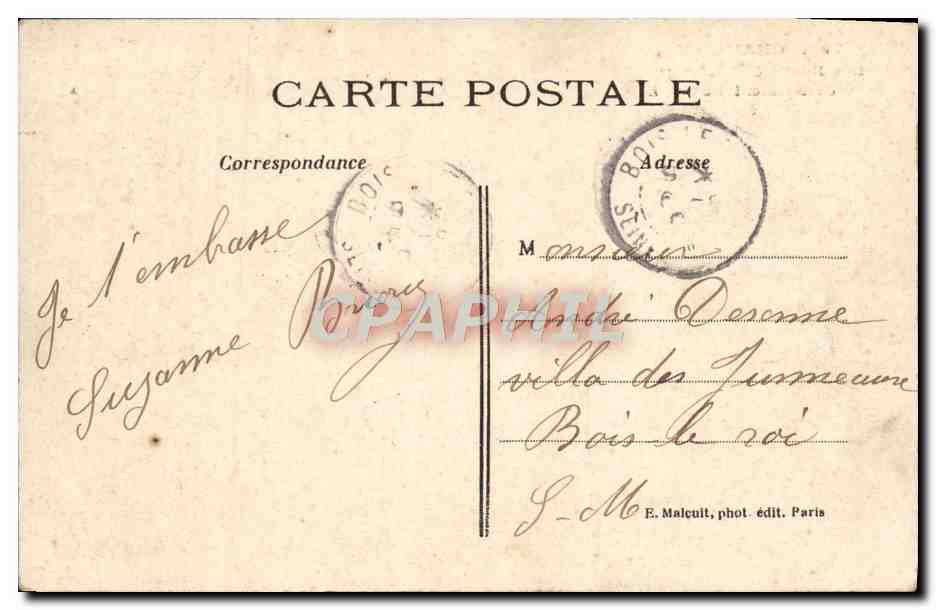 CARTE POSTALE
Correspondance
Adresse
BOIS
BOIS LE
SEINE
Je t'embasse
Suzanne
Monsieur
André
villa des Jumeaux
Bois le roi
S-M
E. Malcuit, phot. édit. Paris
CPAPHIL